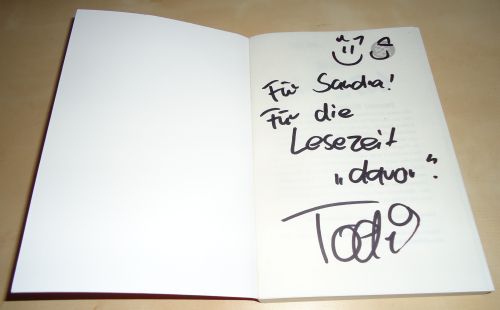 Für Sandra!
Für die
Lesezeit
„davor“.